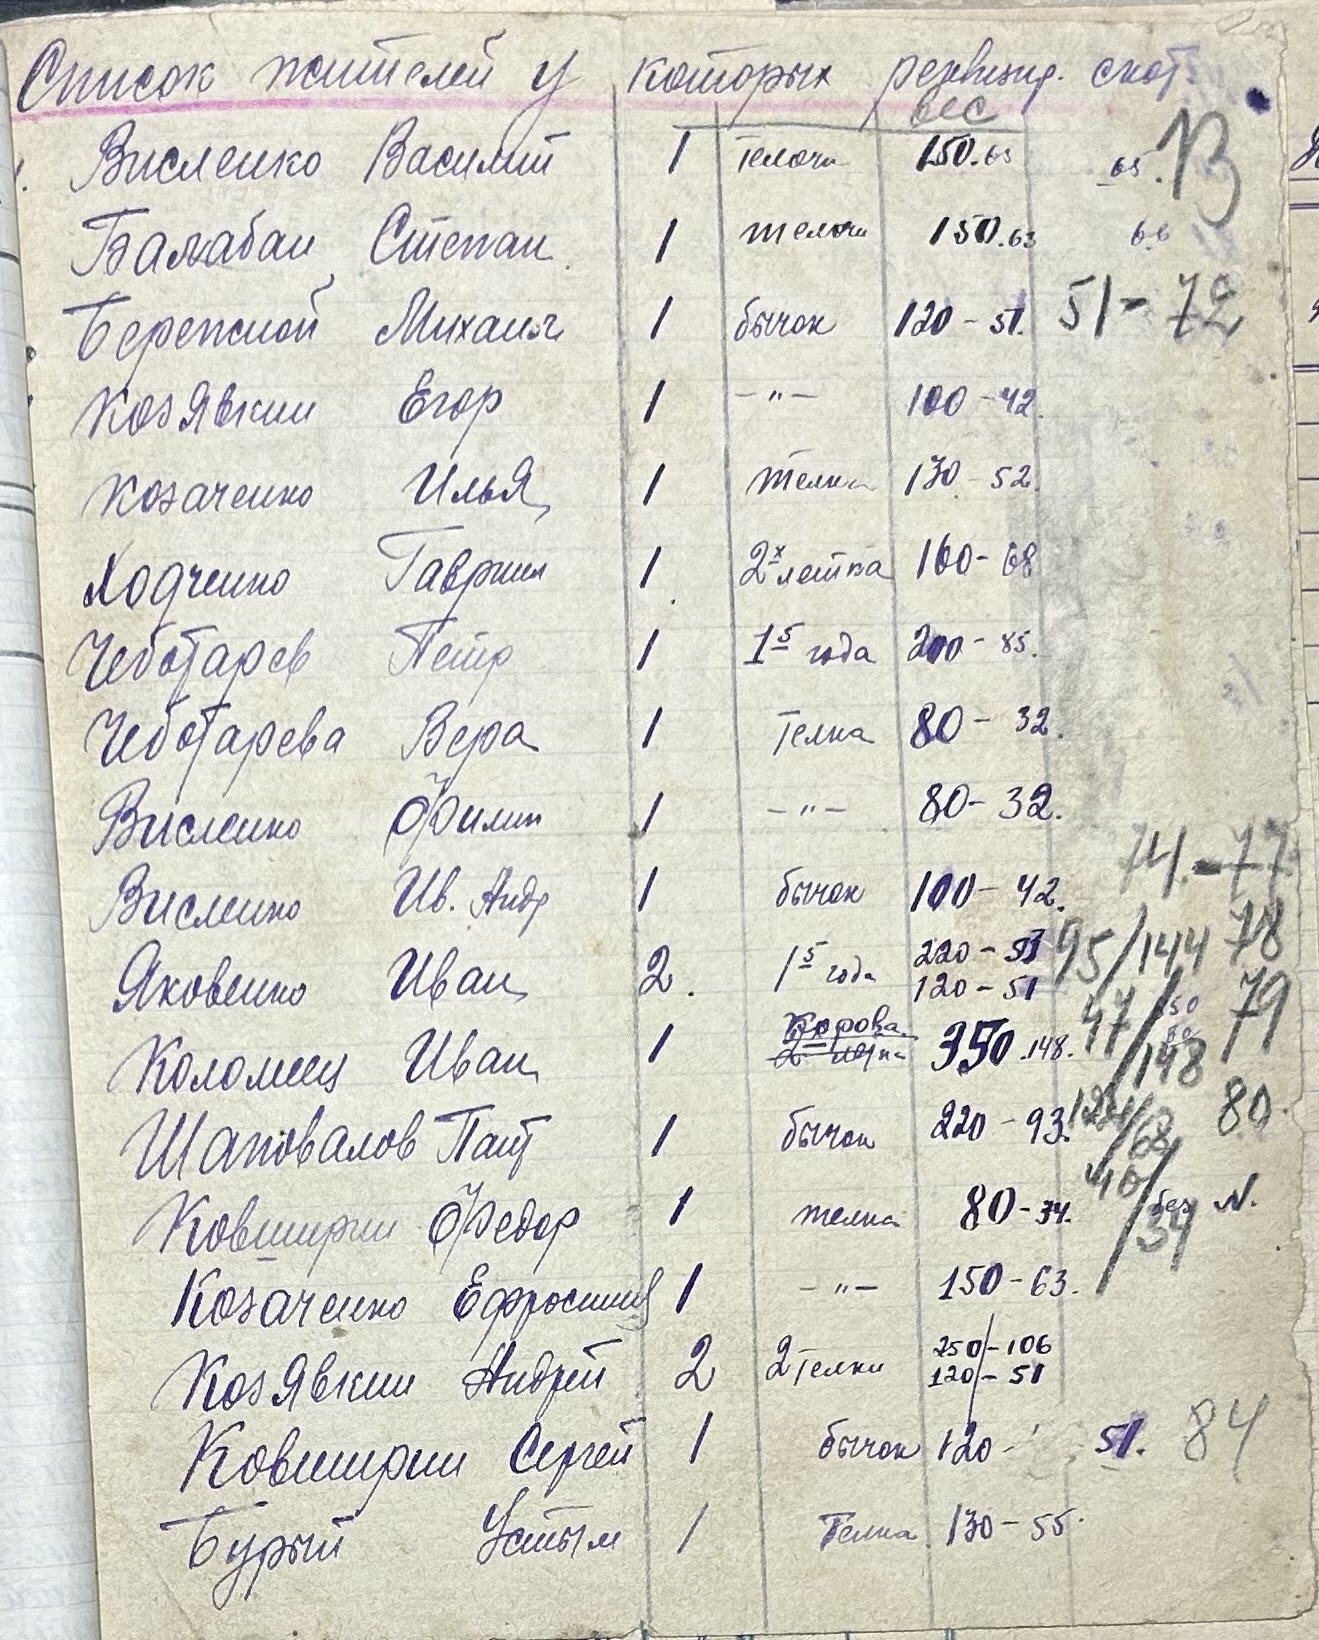 Список жителей у которых реквизир. скот
вес
1. Висленко Василий 1 телочи 150.63 65. 13
Балабан Степан 1 телочи 150.63 6.6
Бережной Михаил 1 бычок 120 - 51. 51 - 72
Козявкин Егор 1 -"- 100 - 42.
Козаченко Илья 1 телка 130 - 52
Ходченко Гавриил 1 2х летка 160 - 68
Чеботарев Петр 1 1 5 года 200 - 85.
Чеботарева Вера 1 Телка 80 - 32.
Висленко Филип 1 -"- 80 - 32.
74. - 77
Висленко Ив. Андр 1 бычок 100 - 42. 78
Яковенко Иван 2. 1 5 года 220 - 93 95/144
120 - 51 79
Коломиец Иван 1 Корова. 350.148. 47/148
Шаповалов Пант 1 бычок 220 - 93. 80.
Ковширин Федор 1 телка 80 - 34. 40/34 без N.
Козаченко Ефросиния 1 -"- 150 - 63.
Козявкин Андрей 2 2 телки 250 - 106
120 - 51
Ковширин Сергей 1 бычок 120 - 51. 84
Бурый Устым 1 Телка 130 - 55.